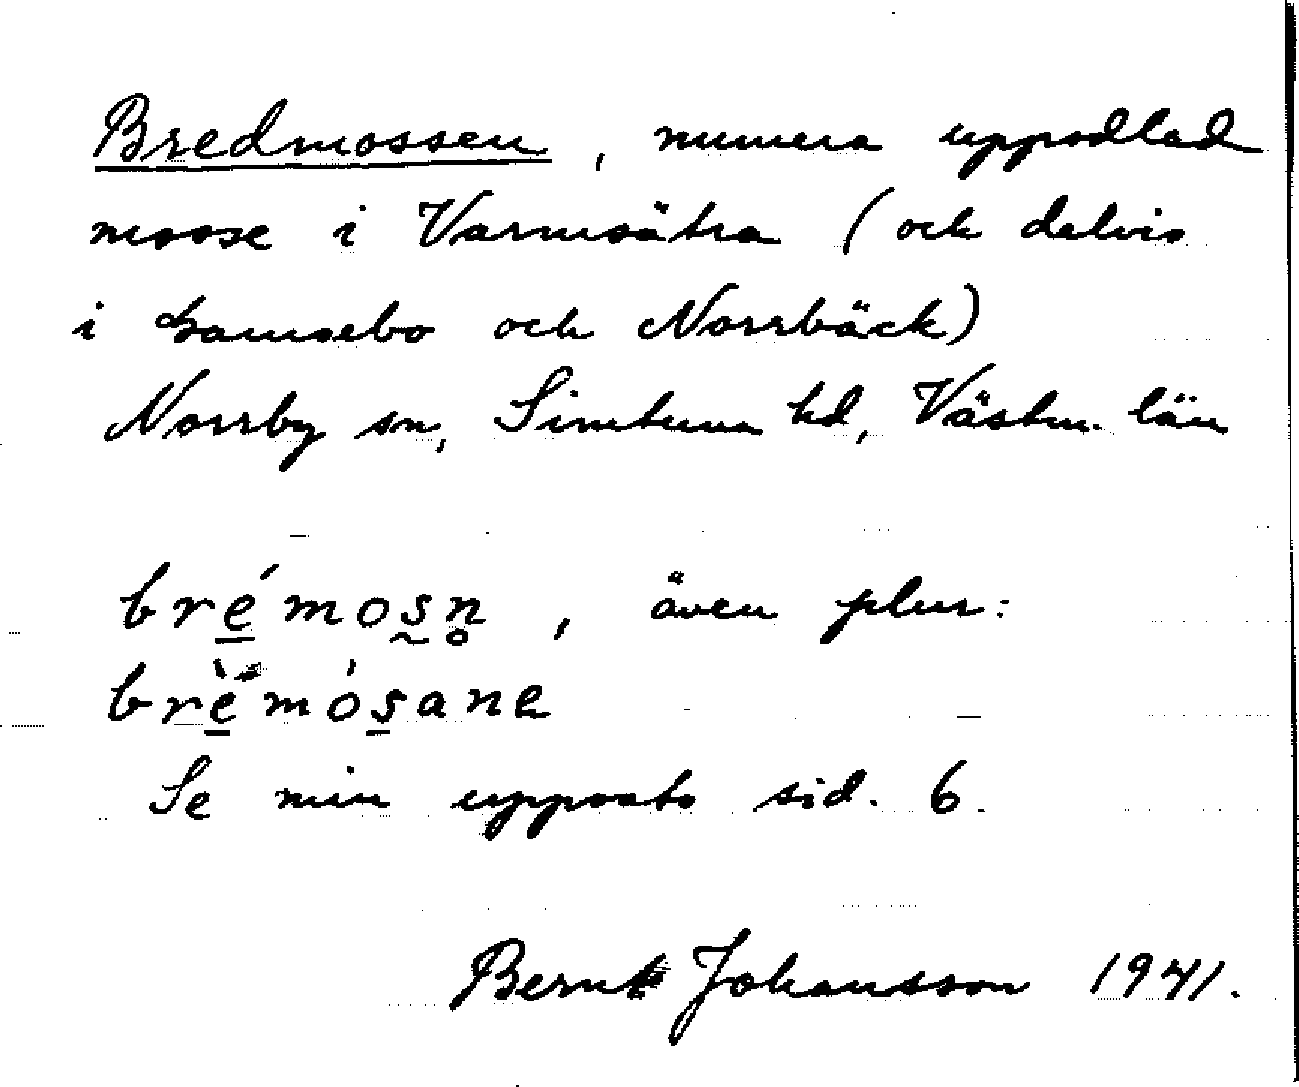 Bredmossen, numera uppodlad
mosse i Varmsätra (och delvis
i Gamsebo och Norrbäck)
Norrby sn, Simtuna hd, Västm. län
brémosn, även plur:
brèmósane
Se min uppsats sid. 6.
Bernt Johansson 1941.